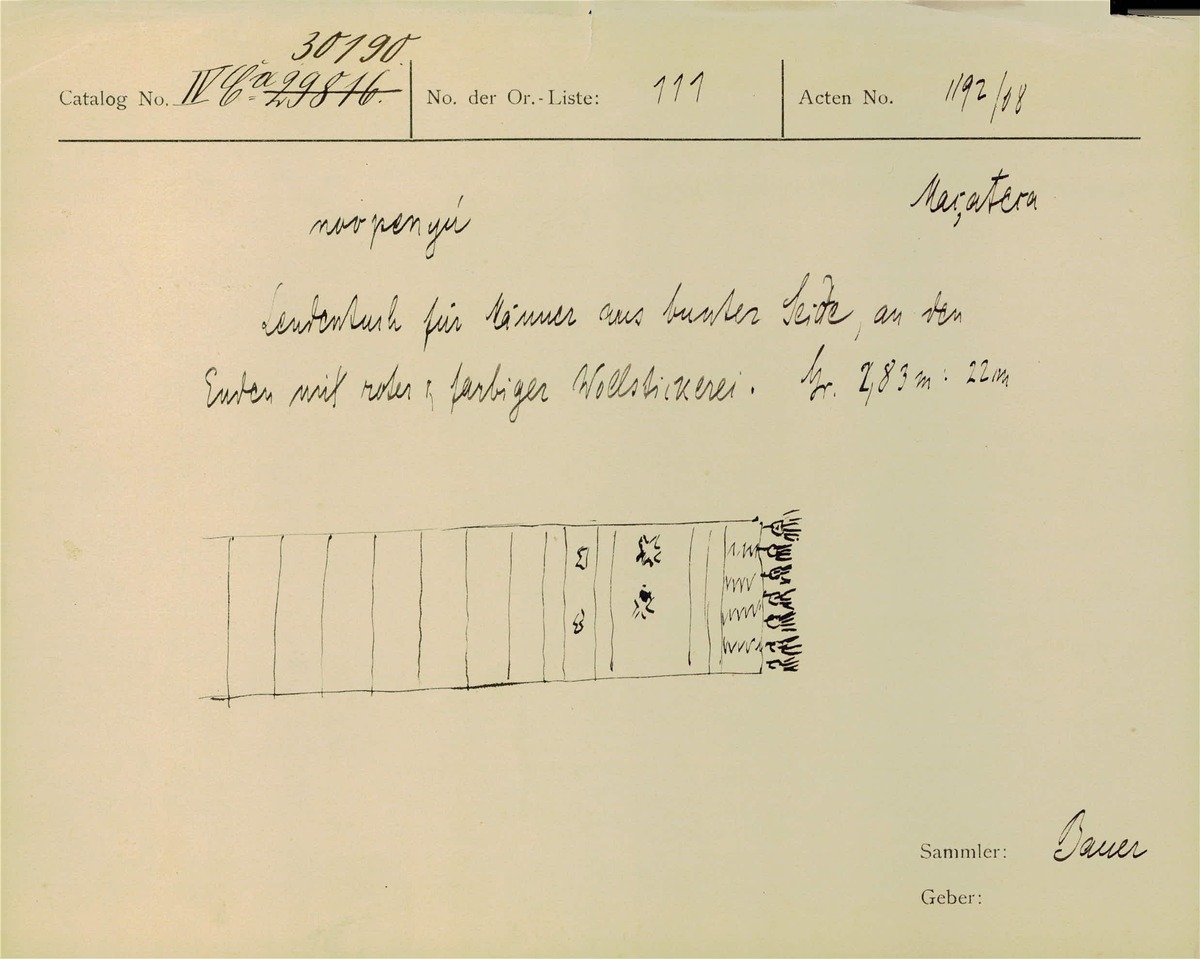 30190.
Catalog No. IV Ca 29816. No. der Or.-Liste: 111 Acten No. 1192/08
Maçateca
noopenyú
Lendentuch für Männer aus bunter Seide, an den
Enden mit roter & farbiger Wollstickerei. Gr. 2,83 m : 22 m
Sammler: Bauer
Geber: